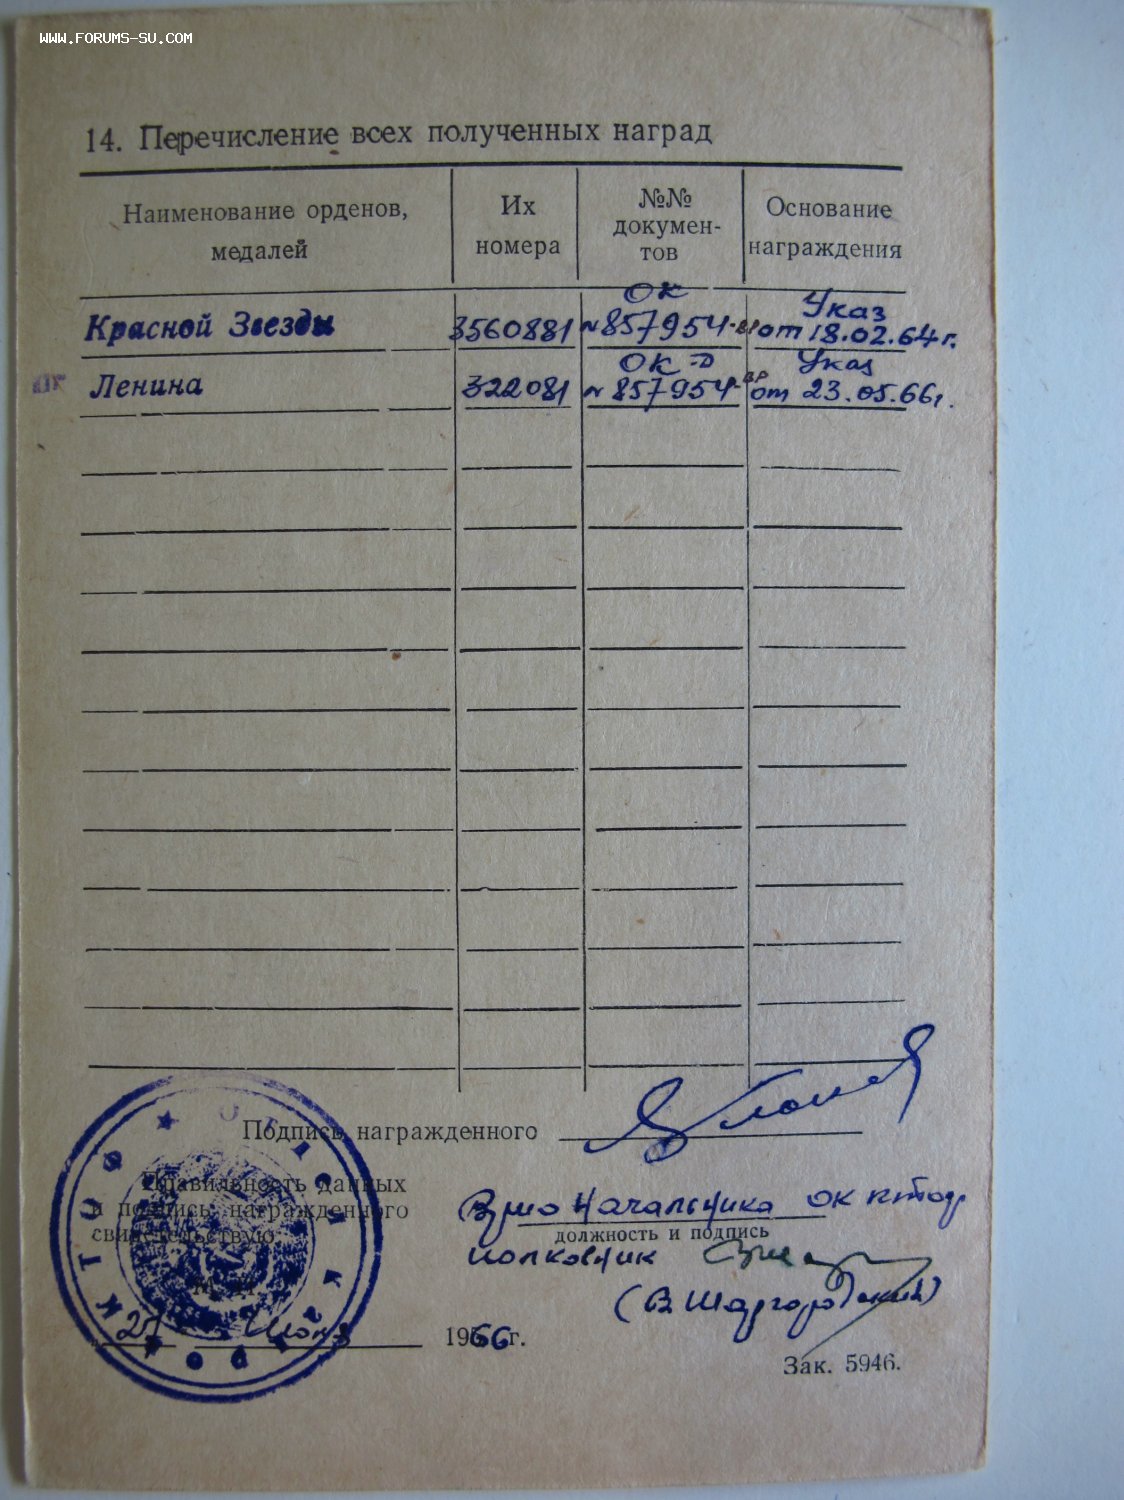 WWW.FORUMS-SU.COM
14. Перечисление всех полученных наград
Наименование орденов, медалей
Их номера
№№ докумен-
тов
Основание награждения
Красной Звезды 3560881 ОК №857954 Указ от 18.02.64г.
Ленина 322081 ОК №857954 Указ от 23.05.66г.
Подпись награжденного
Правильность данных
и подпись награжденного
свидетельствую
Врио Начальника ОК
должность и подпись
полковник
(В Шаргородский)
М. П.
27 Июня 1966 г.
Зак. 5946.